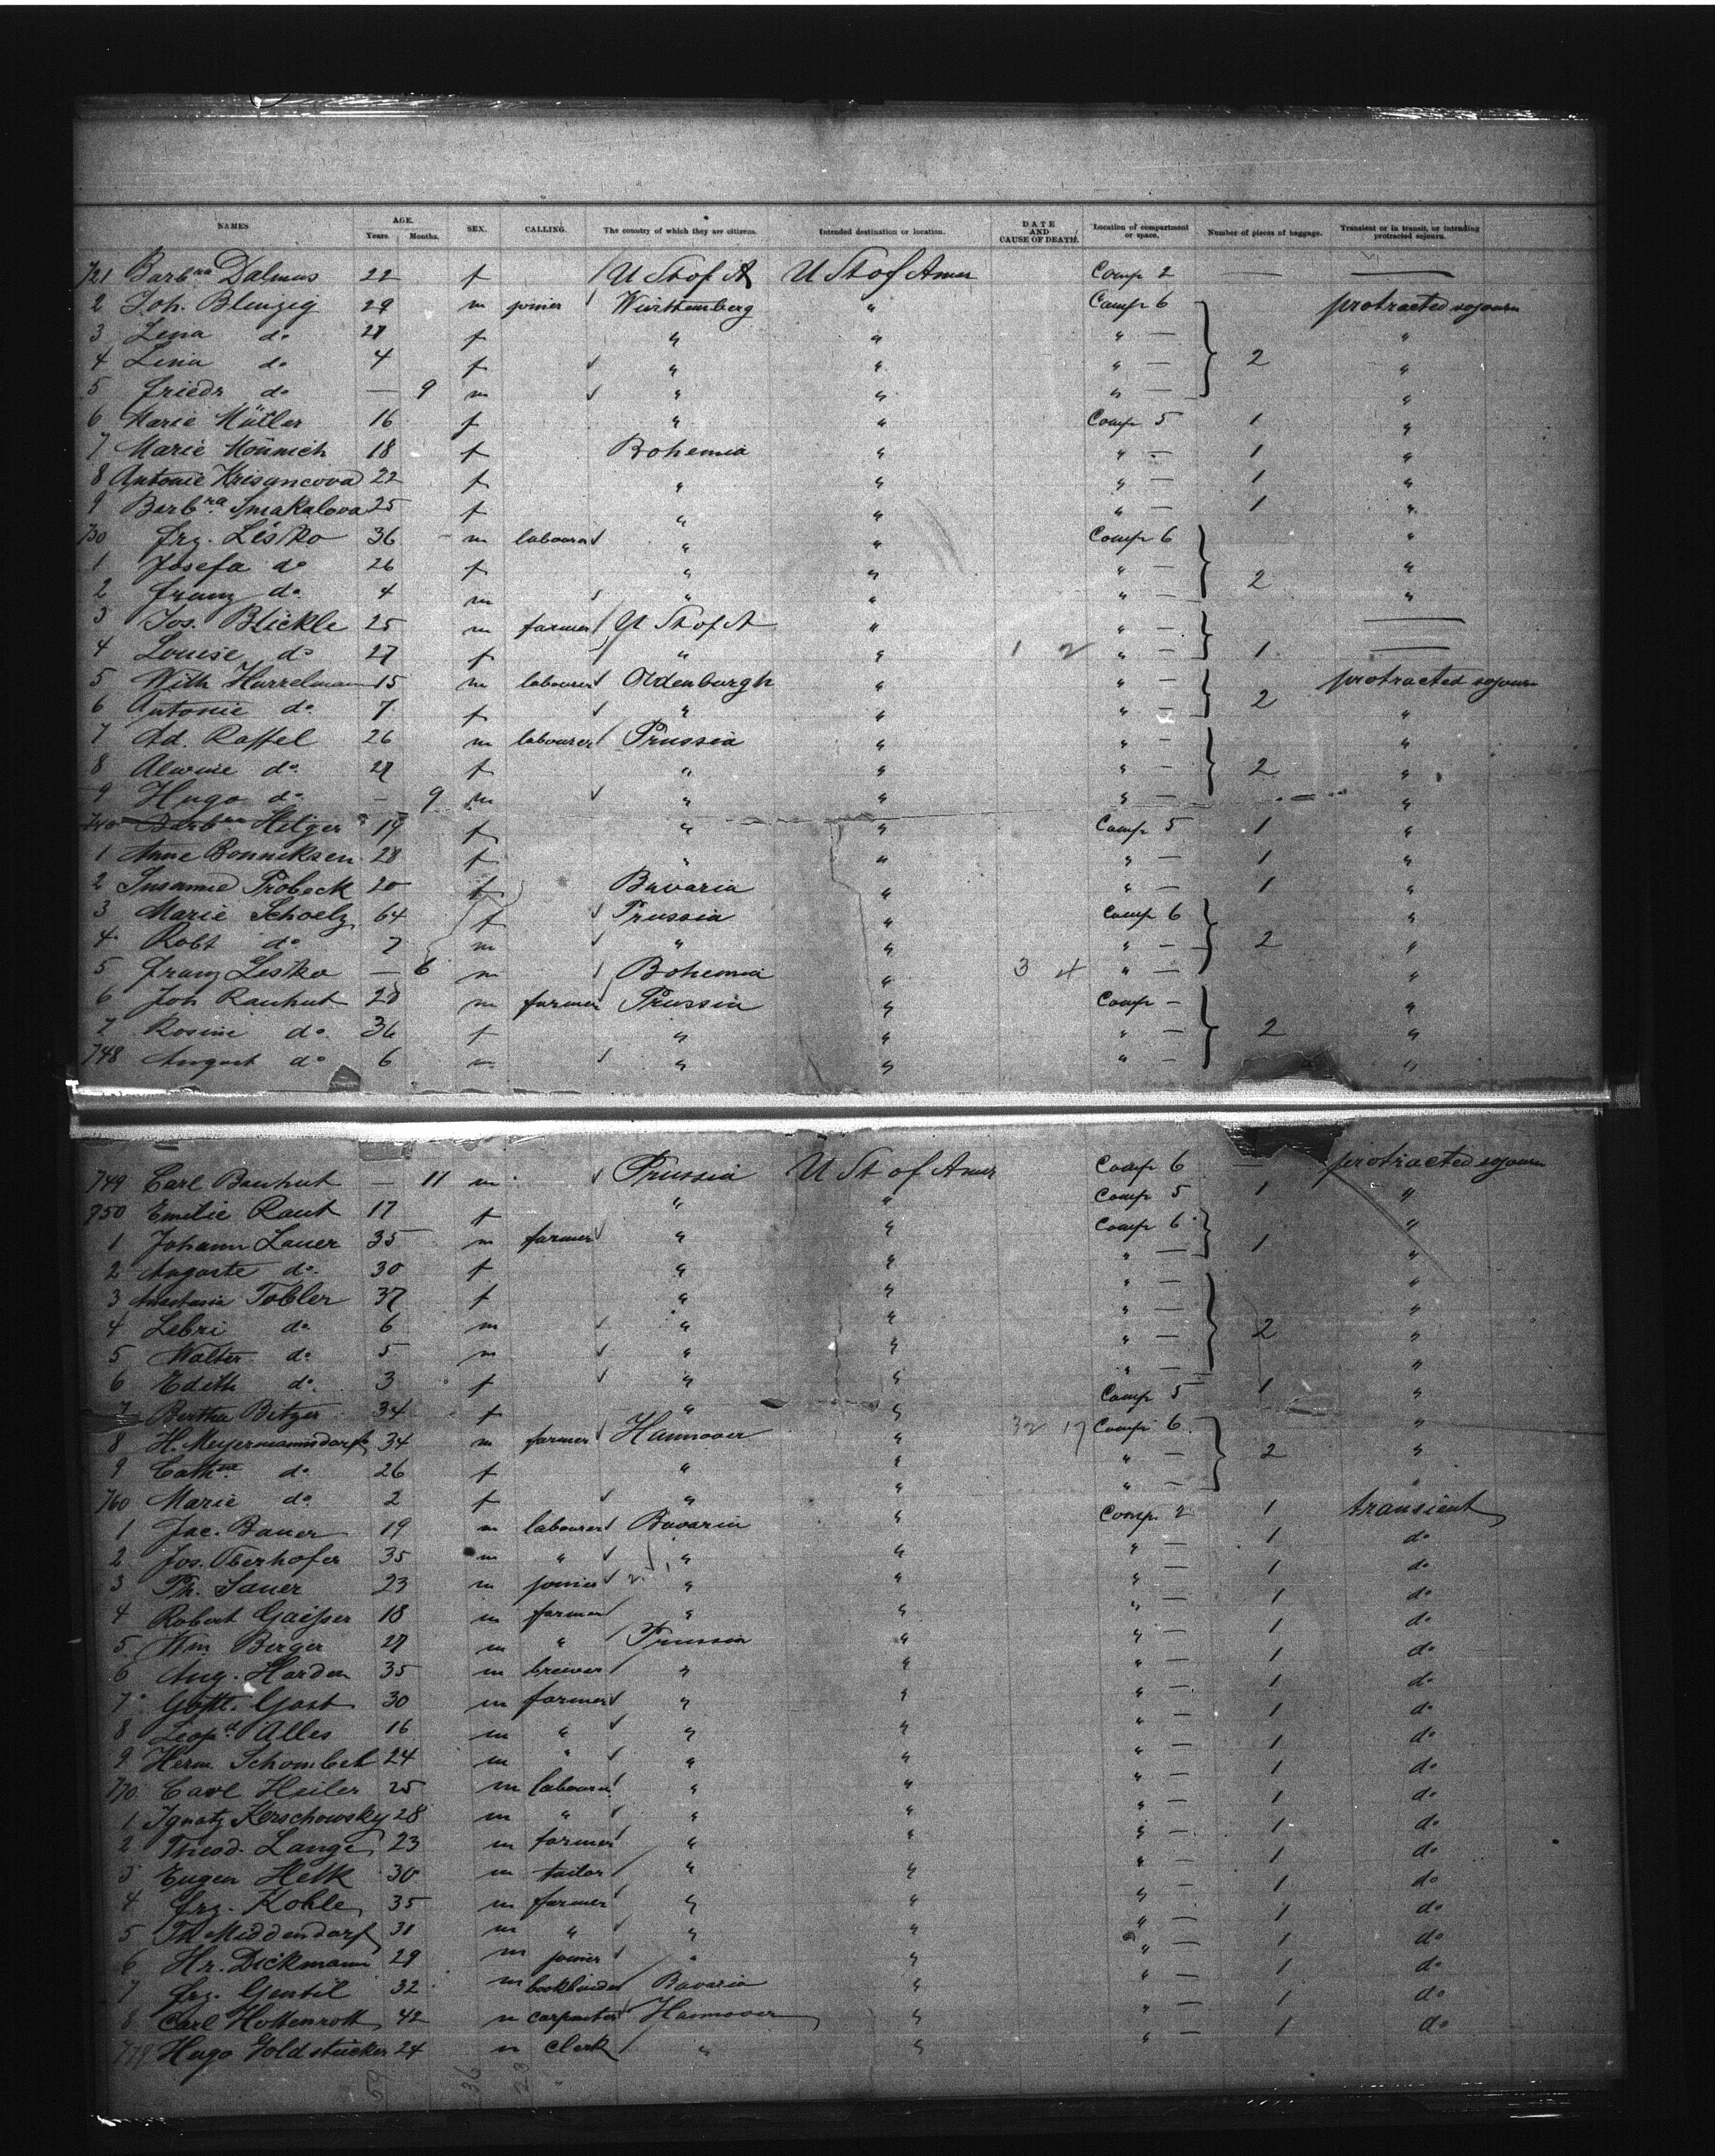 NAMES AGE. Years. Months. SEX. CALLING. The country of which they are citizens. Intended destination or location. DATE AND CAUSE OF DEATH. Location of compartment or space. Number of pieces of baggage. Transient or in transit, or intending protracted sojourn.
721 Barbra Dalmus 22 f U St of A U St of Amer Comp 2 — —
2 Joh. Blenzig 29 m joiner Württemberg " Comp 6 protracted sojourn
3 Lena do 27 f " " " — "
4 Lina do 4 f " " " — 2 "
5 Friedr do — 9 m " " " — "
6 Marie Müller 16 f " " Comp 5 1 "
7 Marie Mönnich 18 f Bohemia " " — 1 "
8 Antonie Krisancova 22 f " " " — 1 "
9 Barbra Smakalova 25 f " " " — 1 "
730 Frz. Lesko 36 m labourer " " Comp 6 "
1 Josefa do 26 f " " " — "
2 Franz do 4 m " " " — 2 "
3 Jos. Blickle 25 m farmer U St of A " " — —
4 Louise do 27 f " " 1 2 " — 1 —
5 Wilh Hurrelmann 15 m labourer Oldenburgh " " — protracted sojourn
6 Antonie do 7 f " " " — 2 "
7 Ad. Raffel 26 m labourer Prussia " " — "
8 Alwine do 27 f " " " — 2 "
9 Hugo do — 9 m " " " — "
740 Barbra Hilger 19 f " " Comp 5 1 "
1 Anne Bonniksen 28 f " " " — 1 "
2 Susanne Trobeck 20 f Bavaria " " — 1 "
3 Marie Schoelz 64 f Prussia " Comp 6 "
4 Robt do 7 m " " " — 2 "
5 Franz Lesko — 6 m Bohemia " 3 4 " — "
6 Joh Rauhut 28 m farmer Prussia " Comp — "
7 Rosine do 36 f " " " — 2 "
748 August do 6 m " " " — "
749 Carl Bauhut — 11 m Prussia U St of Amer Comp 6 — protracted sojourn
750 Emilie Raut 17 f " " Comp 5 1 "
1 Johann Lauer 35 m farmer " " Comp 6 "
2 Auguste do 30 f " " " — 1 "
3 Anastasia Tobler 37 f " " " — "
4 Lebri do 6 m " " " — "
5 Walter do 5 m " " " — 2 "
6 Edith do 3 f " " " — "
7 Bertha Bitzer 34 f " " Comp 5 1 "
8 H. Meyermannsdorf 34 m farmer Hannover " 32 17 Comp 6 "
9 Cathne do 26 f " " " — 2 "
760 Marie do 2 f " " " — "
1 Jac. Bauer 19 m labourer Bavaria " Comp. 2 1 transient
2 Jos. Oberhofer 35 m " " " " — 1 do
3 Ph. Sauer 23 m joiner " " " — 1 do
4 Robert Gaisser 18 m farmer " " " — 1 do
5 Wm. Berger 27 m " Prussia " " — 1 do
6 Aug. Harden 35 m brewer " " " — 1 do
7 Gottl. Gast 30 m farmer " " " — 1 do
8 Leopd Alles 16 m " " " " — 1 do
9 Herm. Schombeck 24 m " " " " — 1 do
770 Carl Heiler 25 m labourer " " " — 1 do
1 Ignatz Kerschowsky 28 m " " " " — 1 do
2 Theod. Lange 23 m farmer " " " — 1 do
3 Eugen Helk 30 m tailor " " " — 1 do
4 Frz. Kohle 35 m farmer " " " — 1 do
5 Th Middendorf 31 m " " " " — 1 do
6 Hr. Dickmann 29 m joiner " " " — 1 do
7 Frz. Gentil 32 m bookbinder Bavaria " " — 1 do
8 Carl Hottenrott 42 m carpenter Hannover " " — 1 do
779 Hugo Goldstücker 24 m clerk " " " — 1 do
59 36 23